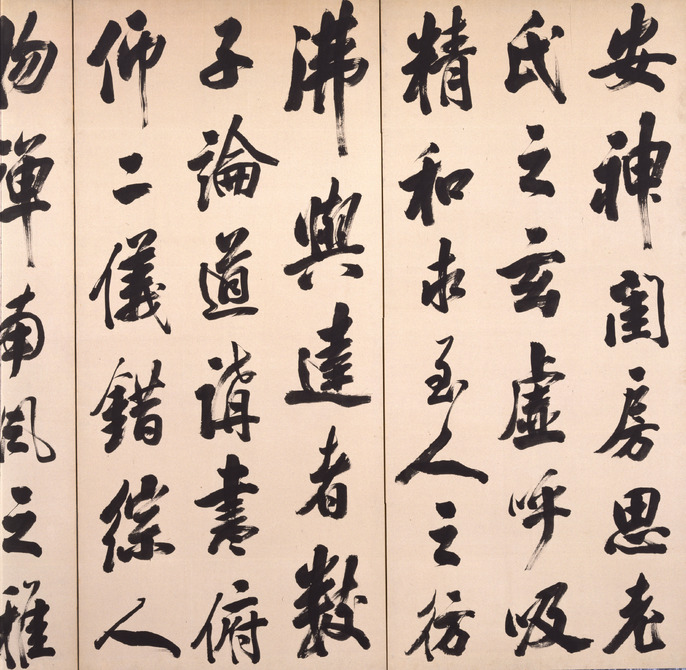 安神閨房思老
氏之玄虛呼吸
精和求至人之彷
沸與達者數
子論道講書俯
仰二儀錯綜人
物彈南風之雅